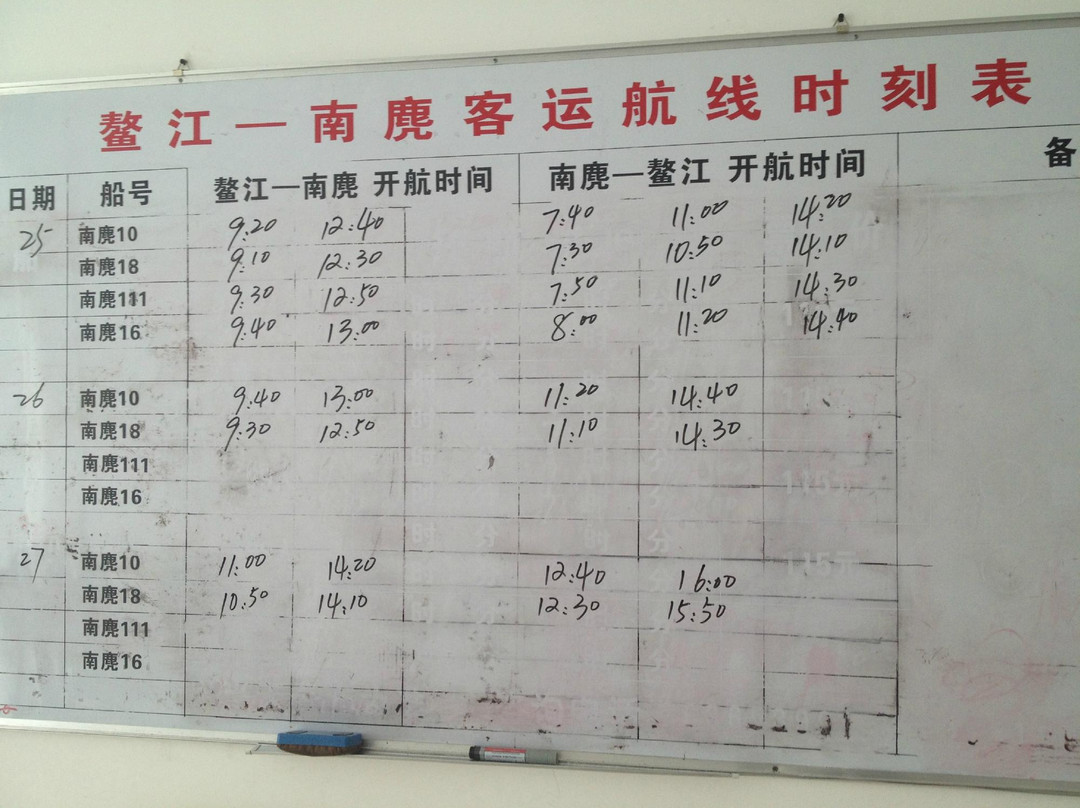 鳌江—南麂客运航线时刻表
日期 船号 鳌江—南麂 开航时间 南麂—鳌江 开航时间 备
25 南麂10 9:20 12:40 7:40 11:00 14:20
南麂18 9:10 12:30 7:30 10:50 14:10
南麂111 9:30 12:50 7:50 11:10 14:30
南麂16 9:40 13:00 8:00 11:20 14:40
26 南麂10 9:40 13:00 11:20 14:40
南麂18 9:30 12:50 11:10 14:30
南麂111
南麂16
27 南麂10 11:00 14:20 12:40 16:00
南麂18 10:50 14:10 12:30 15:50
南麂111
南麂16